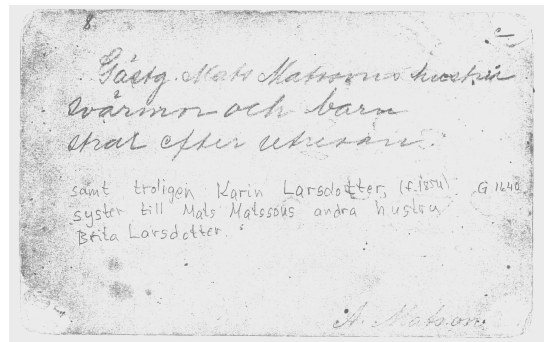 8.
Gästg. Mats Matssons hustru
svärmor och barn
strax efter
samt troligen Karin Larsdotter, G 1640
syster till Mats Matssons andra hustru
Brita Larsdotter.
A. Matson.